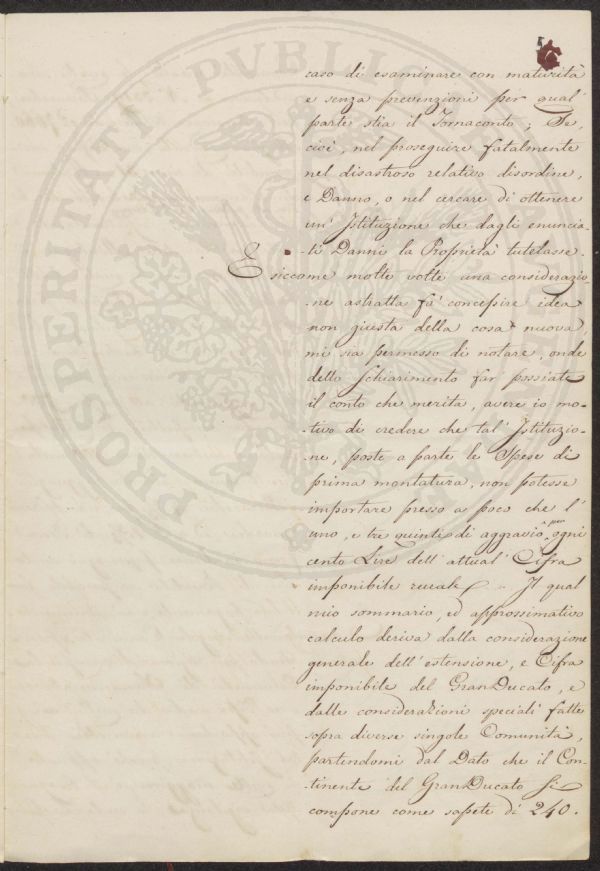 PROSPERITATI PVBLIC
caso di esaminare con maturità
e senza prevenzioni per qual'
parte stia il Tornaconto; Se,
cioè, nel proseguire fatalmente
nel disastroso relativo disordine,
e Danno, o nel cercare di ottenere
un' Istituzione che dagli enuncia-
-ti Danni la Proprietà tutelasse.
E siccome molte volte una considerazio-
-ne astratta fà concepire idea
non giusta della cosa nuova,
mi sia permesso di notare, onde
detto Schiarimento far possiate
il conto che merita, avere io mo-
-tivo di credere che tal' Istituzio-
-ne, poste a parte le Spese di
prima montatura, non potesse
importare presso a poco che l'
uno, e tre quinti di aggravio per ogni
cento Lire dell' attual' Cifra
imponibile rurale. Il qual
mio sommario, ed approssimativo
calculo deriva dalla considerazione
generale dell' estensione, e Cifra
imponibile del GranDucato, e
dalle considerazioni speciali fatte
sopra diverse singole Comunità,
partendomi dal Dato che il Con-
-tinente del GranDucato si
compone come sapete di 240.